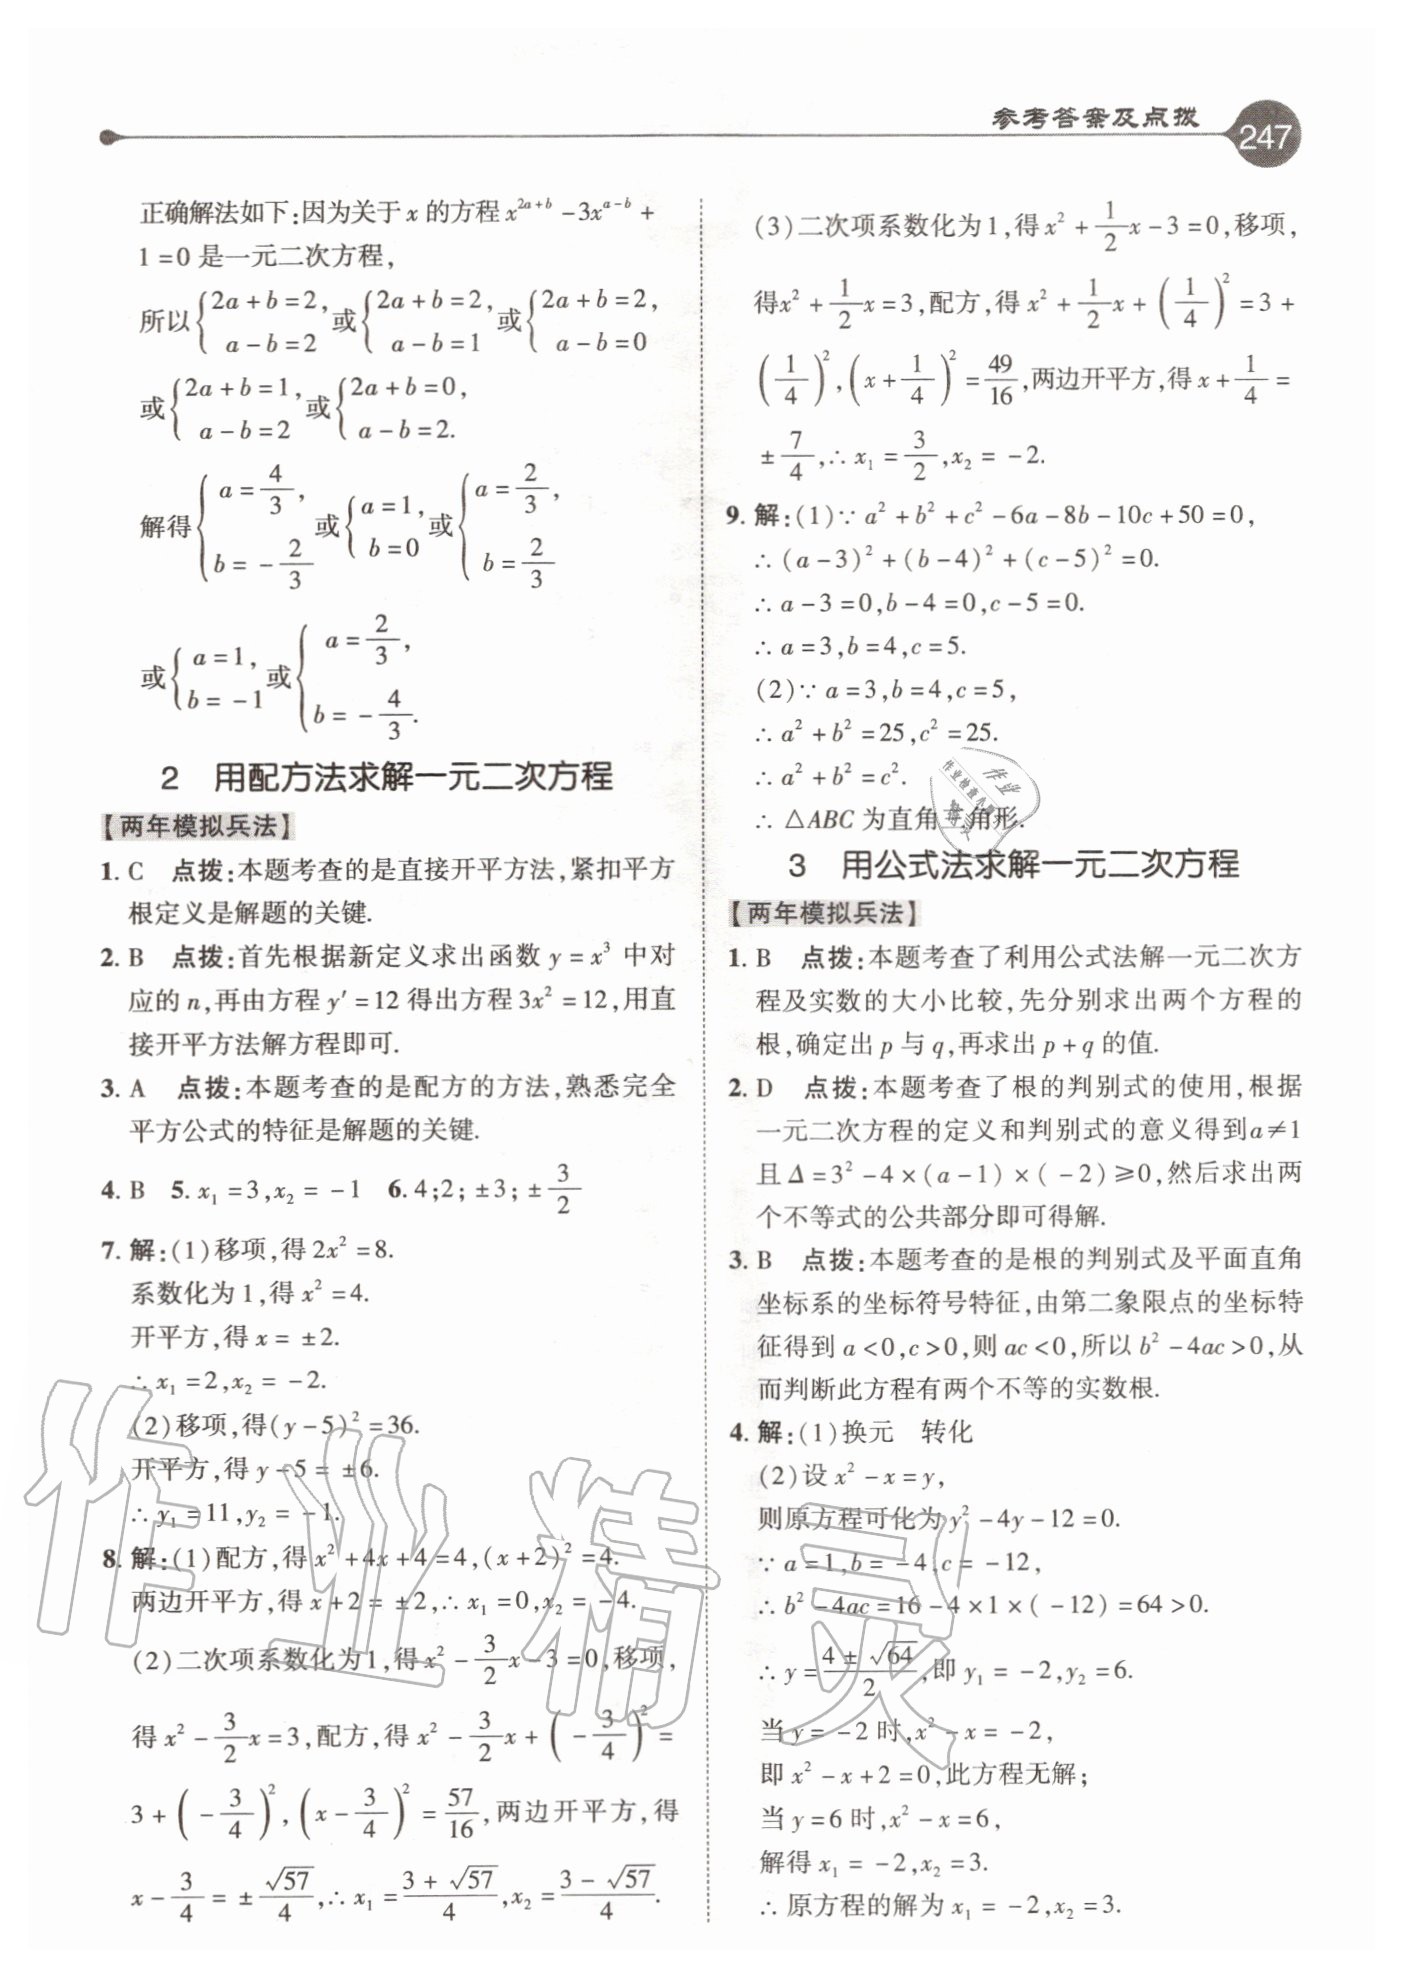 参考答案及点拨
247
正确解法如下:因为关于 x 的方程 x^{2a+b} -3x^{a-b} +
1=0 是一元二次方程,
所以{2a+b=2, a-b=2 或{2a+b=2, a-b=1 或{2a+b=2, a-b=0
或{2a+b=1, a-b=2 或{2a+b=0, a-b=2.
解得{a=4/3, b=-2/3 或{a=1, b=0 或{a=2/3, b=2/3
或{a=1, b=-1 或{a=2/3, b=-4/3.
2 用配方法求解一元二次方程
【两年模拟兵法】
1. C 点拨:本题考查的是直接开平方法,紧扣平方
根定义是解题的关键.
2. B 点拨:首先根据新定义求出函数 y=x³ 中对
应的 n,再由方程 y′=12 得出方程 3x²=12,用直
接开平方法解方程即可.
3. A 点拨:本题考查的是配方的方法,熟悉完全
平方公式的特征是解题的关键.
4. B 5. x₁=3,x₂=-1 6. 4;2;±3;±3/2
7. 解:(1)移项,得 2x²=8.
系数化为 1,得 x²=4.
开平方,得 x=±2.
∴ x₁=2,x₂=-2.
(2)移项,得(y-5)²=36.
开平方,得 y-5=±6.
∴ y₁=11,y₂=-1.
8. 解:(1)配方,得 x²+4x+4=4,(x+2)²=4.
两边开平方,得 x+2=±2,∴ x₁=0,x₂=-4.
(2)二次项系数化为 1,得 x²-3/2x-3=0,移项,
得 x²-3/2x=3,配方,得 x²-3/2x+(-3/4)²=
3+(-3/4)²,(x-3/4)²=57/16,两边开平方,得
x-3/4=±√57/4,∴ x₁=(3+√57)/4,x₂=(3-√57)/4.
(3)二次项系数化为 1,得 x²+1/2x-3=0,移项,
得 x²+1/2x=3,配方,得 x²+1/2x+(1/4)²=3+
(1/4)²,(x+1/4)²=49/16,两边开平方,得 x+1/4=
±7/4,∴ x₁=3/2,x₂=-2.
9. 解:(1)∵ a²+b²+c²-6a-8b-10c+50=0,
∴ (a-3)²+(b-4)²+(c-5)²=0.
∴ a-3=0,b-4=0,c-5=0.
∴ a=3,b=4,c=5.
(2)∵ a=3,b=4,c=5,
∴ a²+b²=25,c²=25.
∴ a²+b²=c².
∴ △ABC 为直角三角形.
3 用公式法求解一元二次方程
【两年模拟兵法】
1. B 点拨:本题考查了利用公式法解一元二次方
程及实数的大小比较,先分别求出两个方程的
根,确定出 p 与 q,再求出 p+q 的值.
2. D 点拨:本题考查了根的判别式的使用,根据
一元二次方程的定义和判别式的意义得到 a≠1
且 Δ=3²-4×(a-1)×(-2)≥0,然后求出两
个不等式的公共部分即可得解.
3. B 点拨:本题考查的是根的判别式及平面直角
坐标系的坐标符号特征,由第二象限点的坐标特
征得到 a<0,c>0,则 ac<0,所以 b²-4ac>0,从
而判断此方程有两个不等的实数根.
4. 解:(1)换元 转化
(2)设 x²-x=y,
则原方程可化为 y²-4y-12=0.
∵ a=1,b=-4,c=-12,
∴ b²-4ac=16-4×1×(-12)=64>0.
∴ y=(4±√64)/2,即 y₁=-2,y₂=6.
当 y=-2 时,x²-x=-2,
即 x²-x+2=0,此方程无解;
当 y=6 时,x²-x=6,
解得 x₁=-2,x₂=3.
∴ 原方程的解为 x₁=-2,x₂=3.
作业精灵
作业